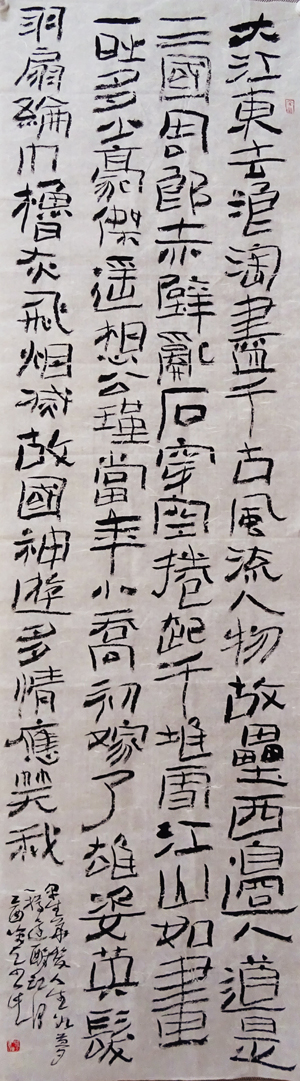 大江東去浪淘盡千古風流人物故壘西邊人道是
三國周郎赤壁亂石穿空捲起千堆雪江山如畫
一時多少豪傑遙想公瑾當年小喬初嫁了雄姿英髮
羽扇綸巾櫓灰飛烟滅故國神遊多情應笑我
早生華髮人生如夢
一樽還酹江月